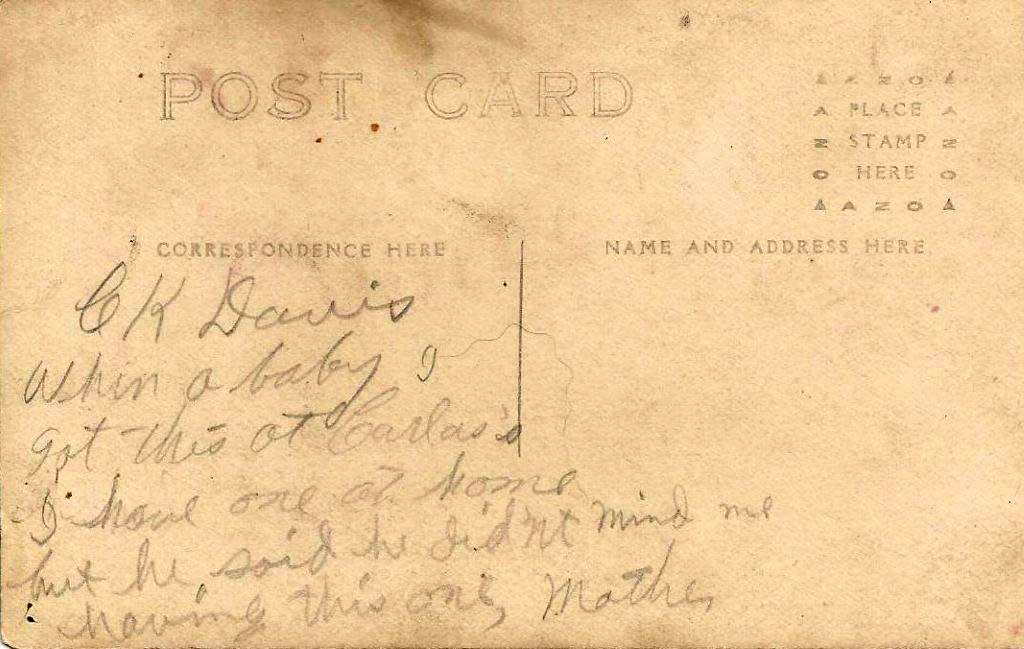 POST CARD
AZOA
A PLACE A
N STAMP N
O HERE O
AZOA
CORRESPONDENCE HERE
NAME AND ADDRESS HERE
C K Davis
When a baby I
got this at Carlas's
I have one at home
but he said he did'nt mind me
having this one, Mother